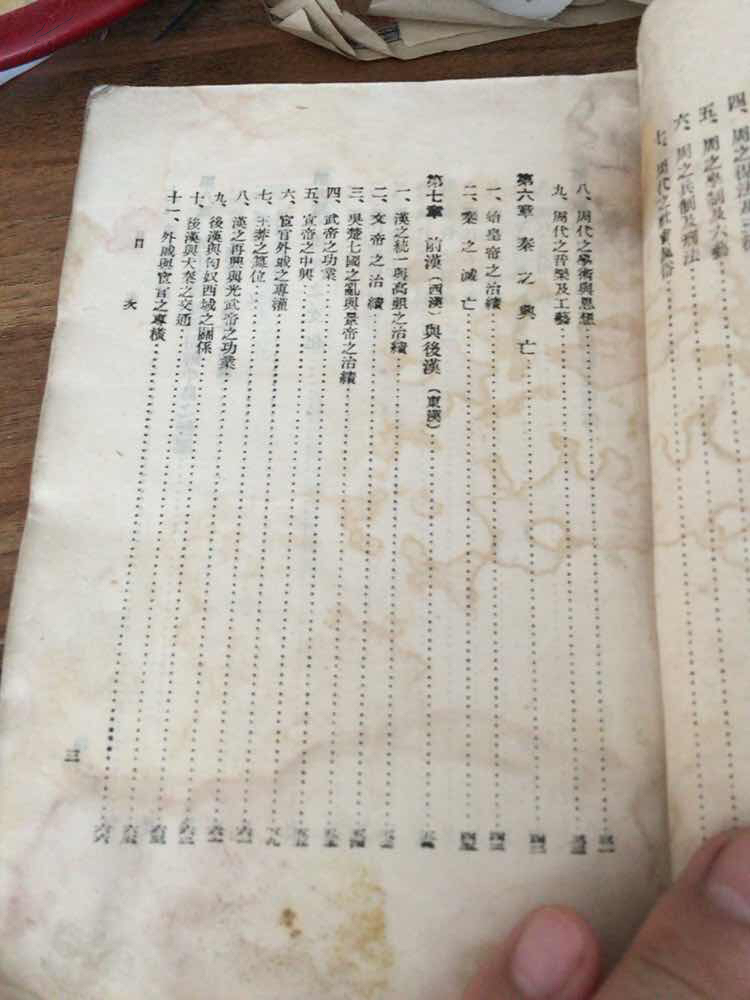 四、周之
五、周之學制及六藝
六、周之兵制及刑法
七、周代之社會風俗
八、周代之學術與思想
九、周代之音樂及工藝
第六章 秦之興亡
一、始皇帝之治績
二、秦之滅亡
第七章 前漢（西漢）與後漢（東漢）
一、漢之統一與高祖之治績
二、文帝之治績
三、吳楚七國之亂與景帝之治績
四、武帝之功業
五、宣帝之中興
六、宦官外戚之專權
七、王莽之篡位
八、漢之再興與光武帝之功業
九、後漢與匈奴西域之關係
十、後漢與大秦之交通
十一、外戚與宦官之專橫
目次
三